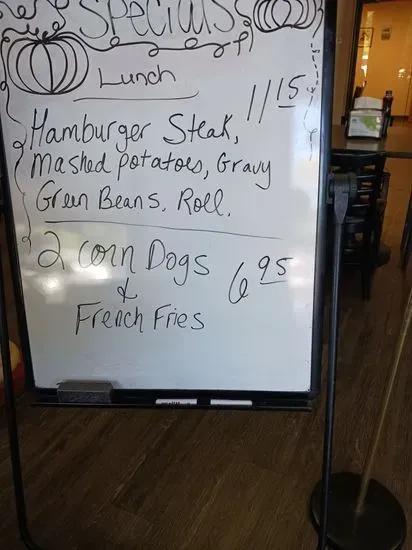 Specials
Lunch
11 15
Hamburger Steak,
Mashed potatoes, Gravy
Green Beans. Roll.
2 corn Dogs
6 95
&
French Fries